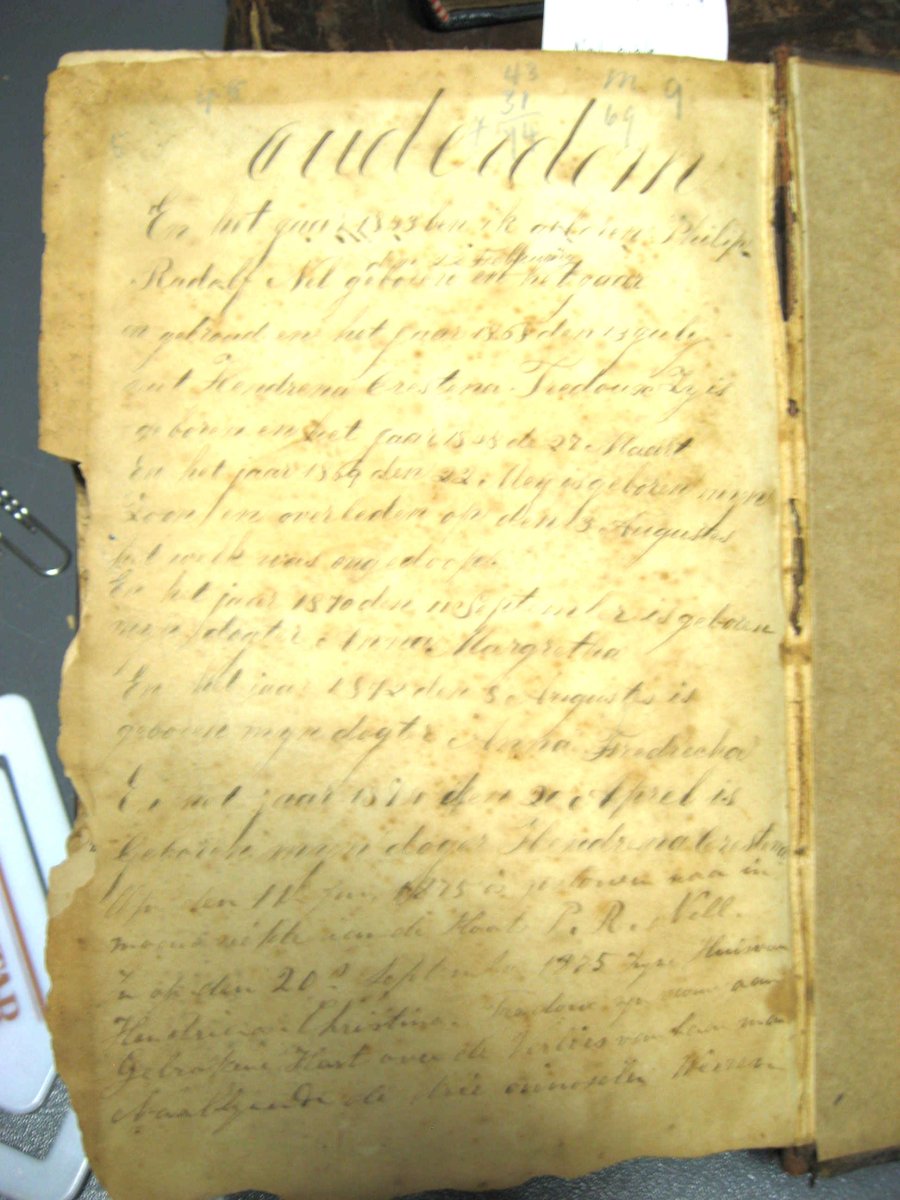 43
31
74
m 9
69
ouderdom
En het gaar 1843 ben ik Philip
den 22
Rudolf Nel geboren en het gaar
en getroud en het Jaar 1868 den 13 July
mit Hendrena Crestena Tredoux Zy is
geboren en het jaar de 27. Maart
En het jaar 1869 den 22. Mey is geboren myn
Zoon en overleden op den 3 Augustes
het welk was ongedoopt.
En het jaar 1870 den September is geboren
myn dogter Anna Margretha
En het jaar 1872 den 3 Augustes is
geboren myn dogter Anna Fredrecka
En het jaar den 20 Aprel is
Geboren myn dogter Hendrena Crestena
Op den 11e 1875 is
de P. R. Nell.
En op den 20e September 1875 zyne Huisvrou
Hendriena Christina aan
Gebroken Hart over de Verlies van haar man
de drie